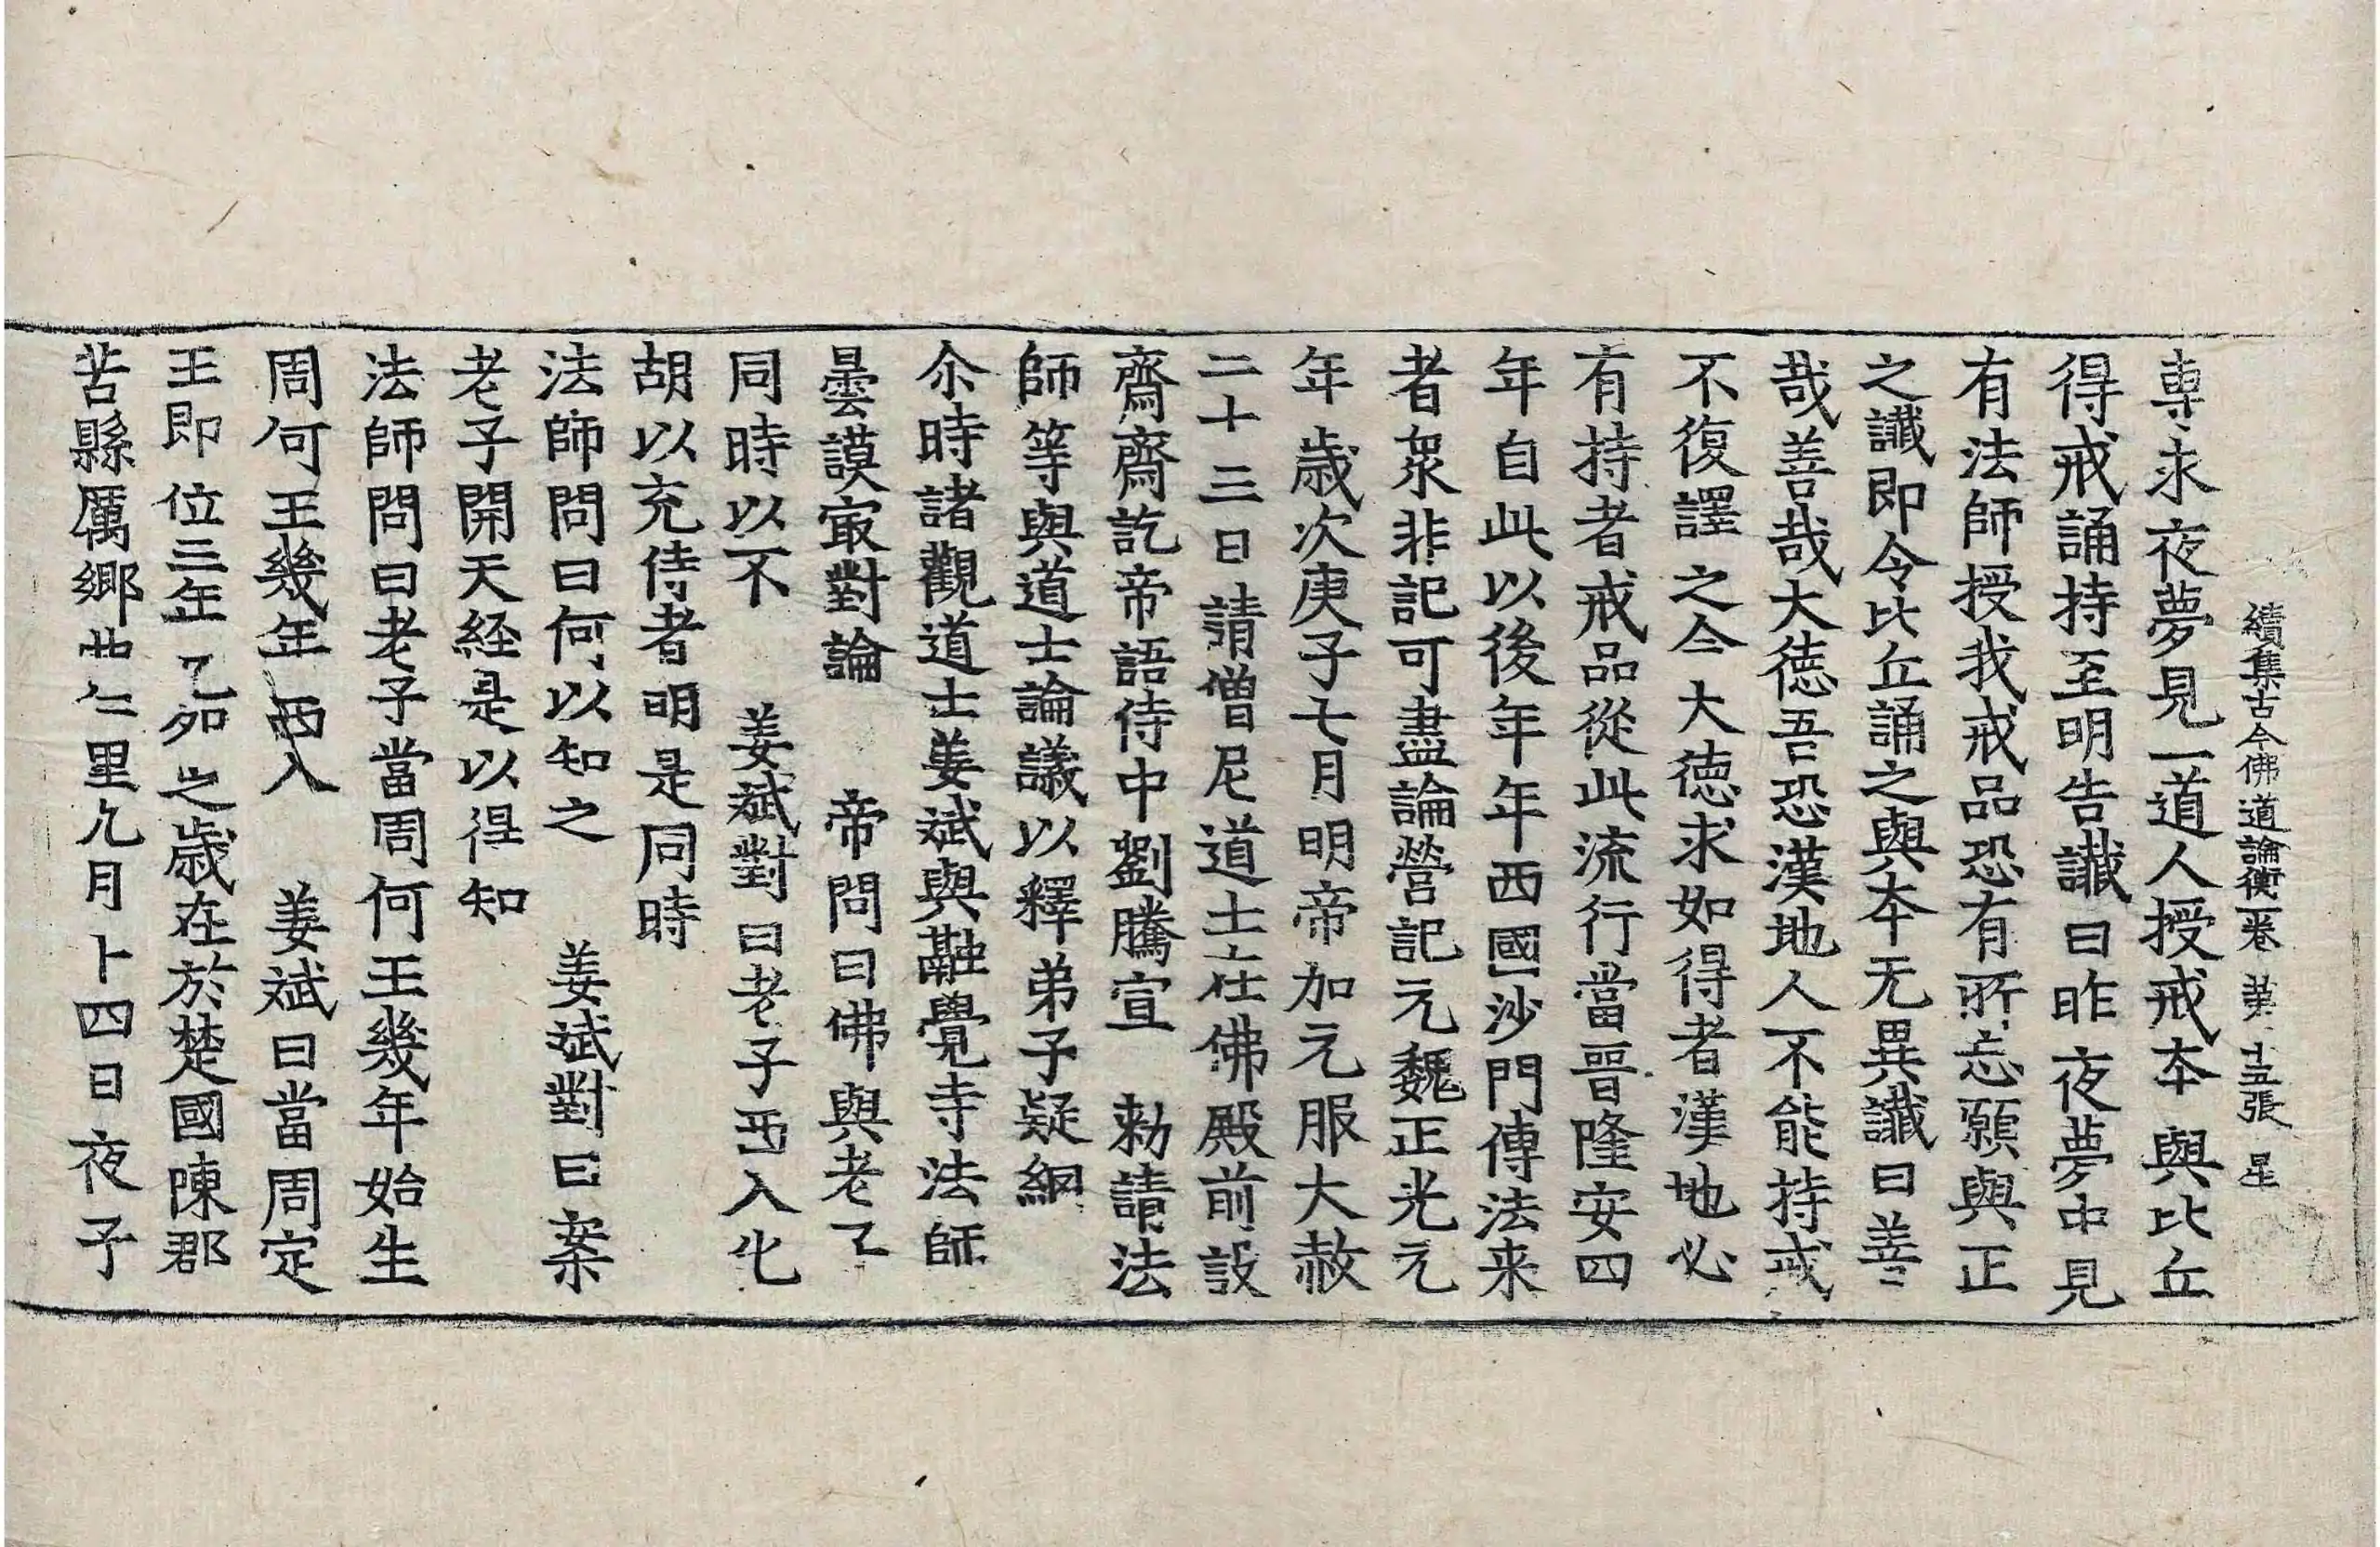 續集古今佛道論衡一卷 第十五張 星
専求夜夢見一道人授戒本與比丘
得戒誦持至明告讖曰昨夜夢中見
有法師授我戒品恐有所忘願與正
之讖即令比丘誦之與本无異讖曰善
哉善哉大徳吾恐漢地人不能持戒
不復譯之今大徳求如得者漢地必
有持者戒品從此流行當晋隆安四
年自此以後年年西國沙門傳法来
者衆非記可盡論營記元魏正光元
年歳次庚子七月明帝加元服大赦
二十三日請僧尼道士在佛殿前設
齋齋訖帝語侍中劉騰宣 勑請法
師等與道士論議以釋弟子疑網
尒時諸觀道士姜斌與融覺寺法師
曇謨㝡對論 帝問曰佛與老子
同時以不 姜斌對曰老子西入化
胡以充侍者明是同時
法師問曰何以知之 姜斌對曰案
老子開天経是以得知
法師問曰老子當周何王幾年始生
周何王幾年西入 姜斌曰當周定
王即位三年乙夘之歳在於楚國陳郡
苦縣厲鄉曲仁里九月十四日夜子